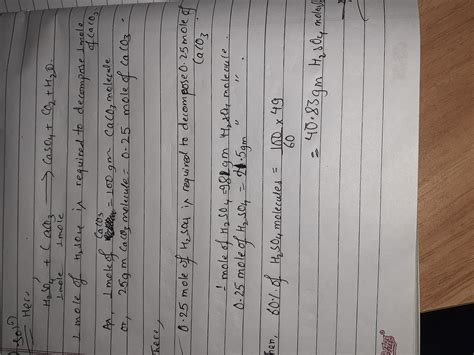 Soln
Here,
H2SO4 + CaCO3 → CaSO4 + CO2 + H2O.
1 mole 1 mole
1 mole of H2SO4 is required to decompose 1 mole
of CaCO3
As, 1 mole of CaCO3 = 100 gm CaCO3 molecule
or, 25 gm CaCO3 molecule = 0.25 mole of CaCO3.
There,
0.25 mole of H2SO4 is required to decompose 0.25 mole of
CaCO3
1 mole of H2SO4 = 98 gm H2SO4 molecule.
0.25 mole of H2SO4 = .5 gm " "
Then, 60% of H2SO4 molecules = 100/60 × 49
= 40.83 gm H2SO4 molecule